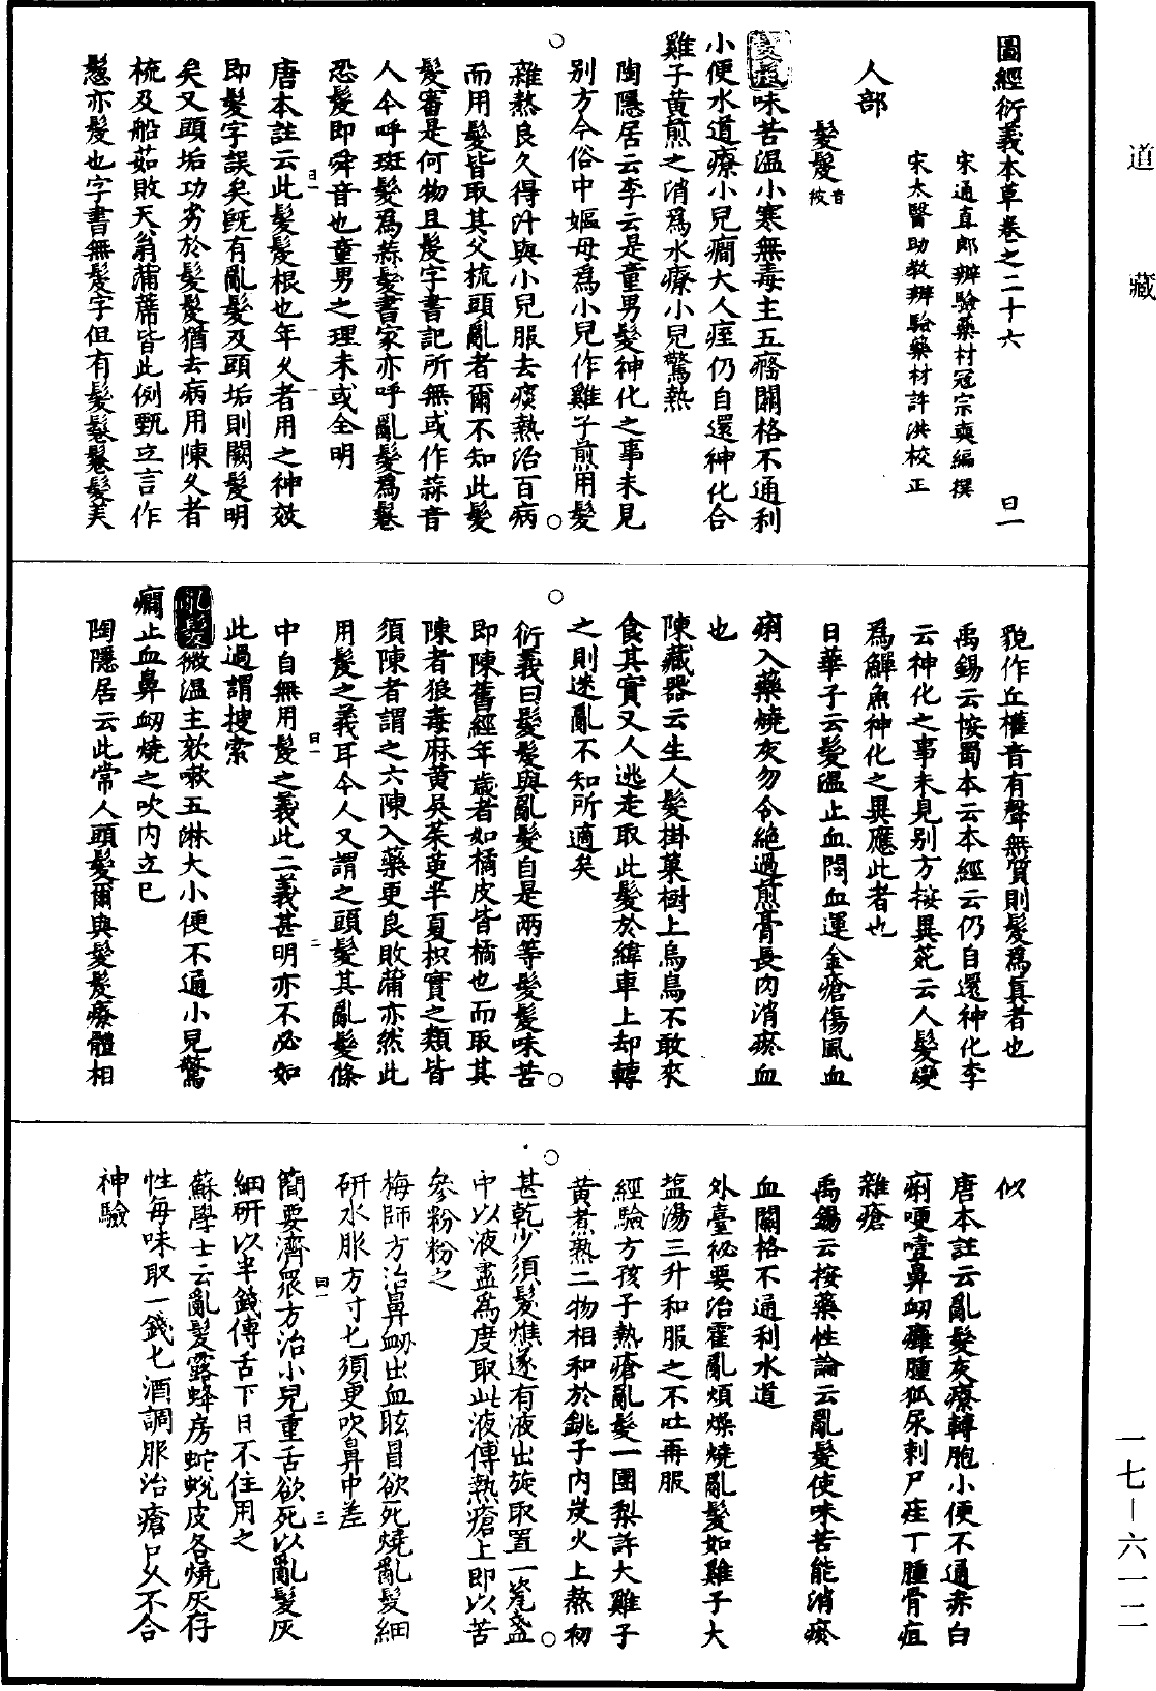 道藏
圖經衍義本草卷之二十六 曰一
宋通直郎辨驗藥材寇宗奭編撰
宋太醫助教辨驗藥材許洪校正
人部
髮髲音被
髮髲味苦溫小寒無毒主五癃關格不通利
小便水道療小兒癇大人痓仍自還神化合
雞子黃煎之消爲水療小兒驚熱
陶隱居云李云是童男髮神化之事未見
別方今俗中嫗母爲小兒作雞子煎用髮
雜熬良久得汁與小兒服去痰熱治百病
而用髮皆取其父梳頭亂者爾不知此髮
髲審是何物且髲字書記所無或作蒜音
人今呼斑髮爲蒜髮書家亦呼亂髮爲鬈
恐髲即舜音也童男之理未或全明
唐本註云此髮髲根也年久者用之神效
即髮字誤矣旣有亂髮及頭垢則闕髮明
矣又頭垢功劣於髮髲猶去病用陳久者
梳及船茹敗天翁蒲蓆皆此例甄立言作
鬈亦髮也字書無髲字但有髮鬈鬈髮美
貌作丘權音有聲無質則髲爲眞者也
禹錫云按蜀本云本經云仍自還神化李
云神化之事未見別方按異苑云人髮變
爲鱓魚神化之異應此者也
日華子云髮溫止血悶血運金瘡傷風血
痢入藥燒灰勿令絕過煎膏長肉消瘀血
也
陳藏器云生人髮掛菓樹上烏鳥不敢來
食其實又人逃走取此髮於緯車上却轉
之則迷亂不知所適矣
衍義曰髮髲與亂髮自是兩等髮髲味苦
即陳舊經年歲者如橘皮皆橘也而取其
陳者狼毒麻黃吳茱萸半夏枳實之類皆
須陳者謂之六陳入藥更良敗蒲亦然此
用髲之義耳今人又謂之頭髲其亂髮條
中自無用髲之義此二義甚明亦不必如
此過謂搜索
亂髮微溫主欬嗽五淋大小便不通小兒驚
癇止血鼻衂燒之吹内立已
陶隱居云此常人頭髮爾與髮髲療體相
似
唐本註云亂髮灰療轉胞小便不通赤白
痢哽噎鼻衂癰腫狐尿刺尸疰丁腫骨疽
雜瘡
禹錫云按藥性論云亂髮使味苦能消瘀
血關格不通利水道
外臺祕要治霍亂煩燥燒亂髮如雞子大
盐湯三升和服之不吐再服
經驗方孩子熱瘡亂髮一團梨許大雞子
黃煮熟二物相和於銚子内炭火上熬初
甚乾少須髮燋遂有液出旋取置一瓷盞
中以液盡爲度取此液傅熱瘡上即以苦
參粉粉之
梅師方治鼻衂出血眩冒欲死燒亂髮細
研水服方寸匕須更吹鼻中差
簡要濟衆方治小兒重舌欲死以亂髮灰
細研以半錢傅舌下日不住用之
蘇學士云亂髮露蜂房蛇蛻皮各燒灰存
性每味取一錢匕酒調服治瘡口久不合
神驗
曰一 一
曰一 二
曰一 三
一七—六一二